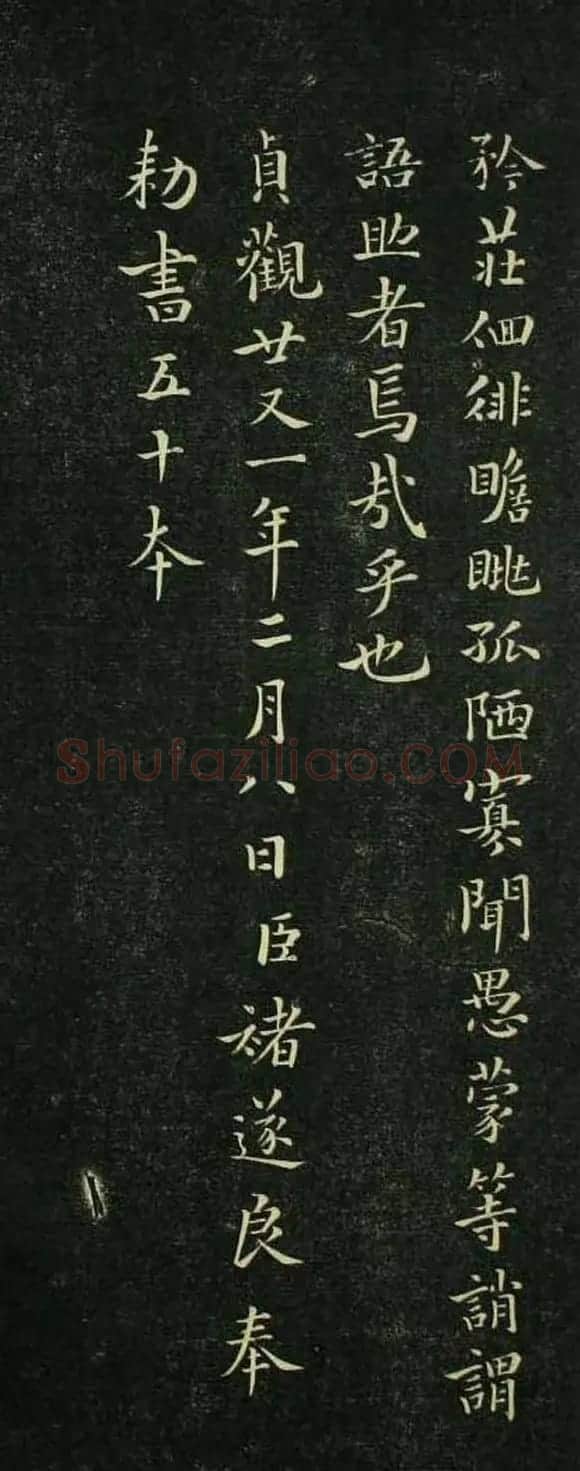 矜莊佪徘瞻眺孤陋寡聞愚蒙等誚謂
語助者焉哉乎也
貞觀廿又一年二月八日臣褚遂良奉
勑書五十本
Shufaziliao.COM